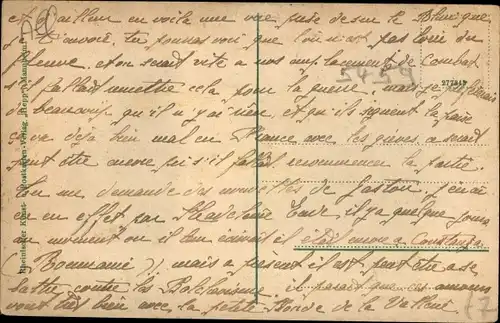 et d'ailleurs en voilà une vue prise dessus le Rhin que
je t'envoie, tu pourras voir que l'on n'est pas loin du
fleuve, et on serait vite à nos emplacements de combat
s'il fallait remettre cela pour la guerre, mais je préférerais
de beaucoup qu'il n'y ai rien et qu'ils signent la paix
ça va déjà bien mal en France avec les grèves ce serait
peut être encore pis s'il fallait recommencer la partie.
Tu me demande des nouvelles de Gaston, j'en ai
eu en effet par Madeleine, il y a quelque jours
au moment où il lui écrivait il était encore à Constanza
(Roumanie), mais à présent il est peut être à se
battre contre les Bolcheviks. il parait que ces amours
vont très bien avec la petite de la Vallée
5459
277447
Rheinischer Kunst- Postkarten-Verlag, Mannheim